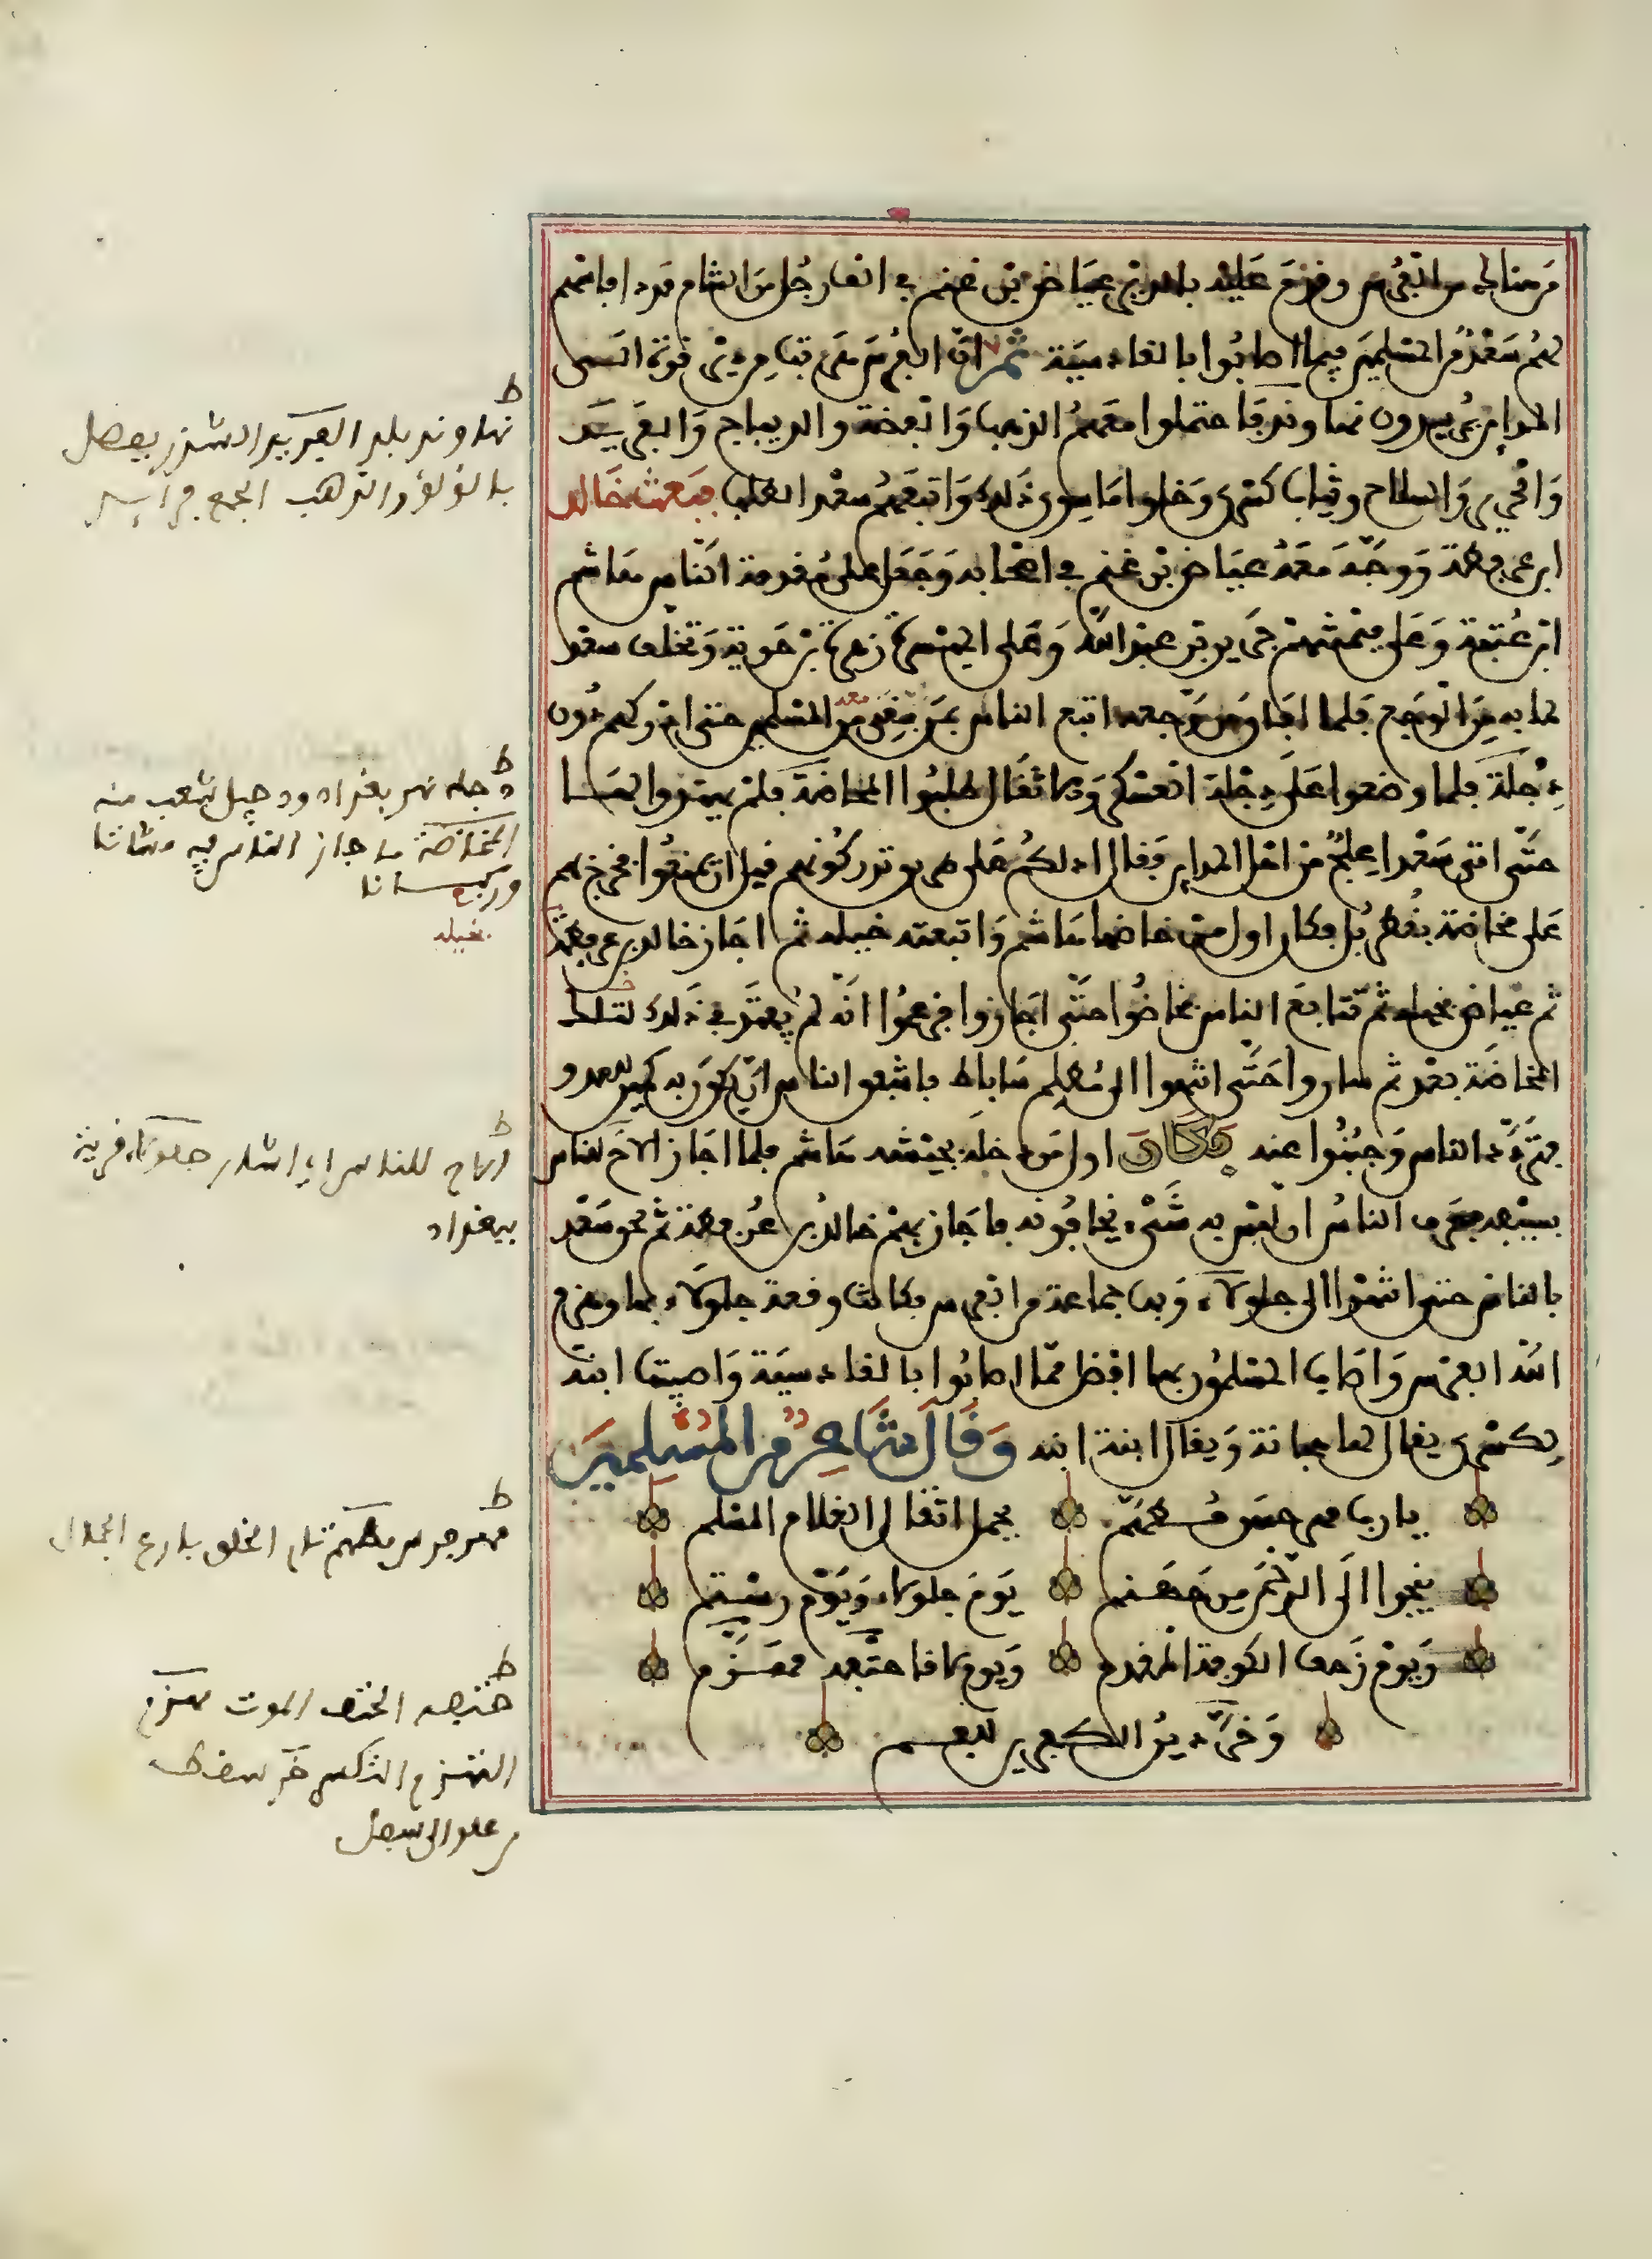 من هنالك من الفرس وقدم عليه بالمدد عياض بن غنم في الف رجل من الشام مددا فاسهم
لهم سعد مع المسلمين فيما اصابوا بالقادسية ثم ان الفرس هربوا من دير قرة الى
المداين يريدون نهاوند فاحتملوا معهم الذهب والفضة والديباج والفرند
والحرير والسلاح وثياب كسرى وخلوا ما سوى ذلك واتبعهم سعد الطلب فبعث خالد
ابن عرفطة ووجه معه عياض بن غنم في اصحابه وجعل على مقدمة الناس هاشم
ابن عتبة وعلى ميمنتهم جرير بن عبد الله وعلى الميسرة زهرة بن حوية وتخلف سعد
لما به من الوجع فلما افاق من وجعه اتبع الناس بمن بقي معه من المسلمين حتى ادركهم دون
دجلة فلما وضعوا على دجلة العسكر والاثقال طلبوا المخاضة فلم يهتدوا لها
حتى اتى سعدا علج من اهل المداين فقال ادلكم على طريق تدركونهم قبل ان يمنعوا فخرج بهم
على مخاضة بقطربل فكان اول من خاضها هاشم واتبعته خيله ثم اجاز خالد بن عرفطة
ثم عياض بخيله ثم تتابع الناس فخاضوا حتى اجازوا فزعموا انه لم يهتد في ذلك لتلك
المخاضة بعد ثم ساروا حتى انتهوا الى مظلم ساباط فاشفق الناس ان يكون به كمين للعدو
فتردد الناس وجبنوا عنه فكان اول من دخله بجيشه هاشم فلما اجاز الاح للناس
بسيفه فعرف الناس ان ليس به شيء يخافونه فاجاز بهم خالد بن عرفطة ثم لحق سعد
بالناس حتى انتهوا الى جلولاء وبها جماعة من الفرس فكانت وقعة جلولاء بها وهزم
الله الفرس واصاب المسلمون بها افضل مما اصابوا بالقادسية واصيبت ابنة
لكسرى يقال لها جانة ويقال ابنة ابنه وقال شاعر من المسلمين
يا رب مهر حسن مطهم يحمل اثقال الغلام المسلم
ينجوا الى الرحمن من جهنم يوم جلولاء ويوم رستم
ويوم زحف الكوفة المقدم ويوم لاقى حتفه مهزم
وخر دين الكافرين للفم
ط نهاوند بلد
باللؤلؤ والذهب
ط دجلة نهر بغداد ودجيل شعب منه
المخاضة ما جاز الناس فيه مشاتا
وركبانا
بخيله
ط الاح للناس اي اشار جلولاء قرية
ببغداد
ط مهر فرس مطهم تام الخلق بارع الجمال
ط حتفه الحتف الموت مهزم
خر سقط
من علو الى سفل